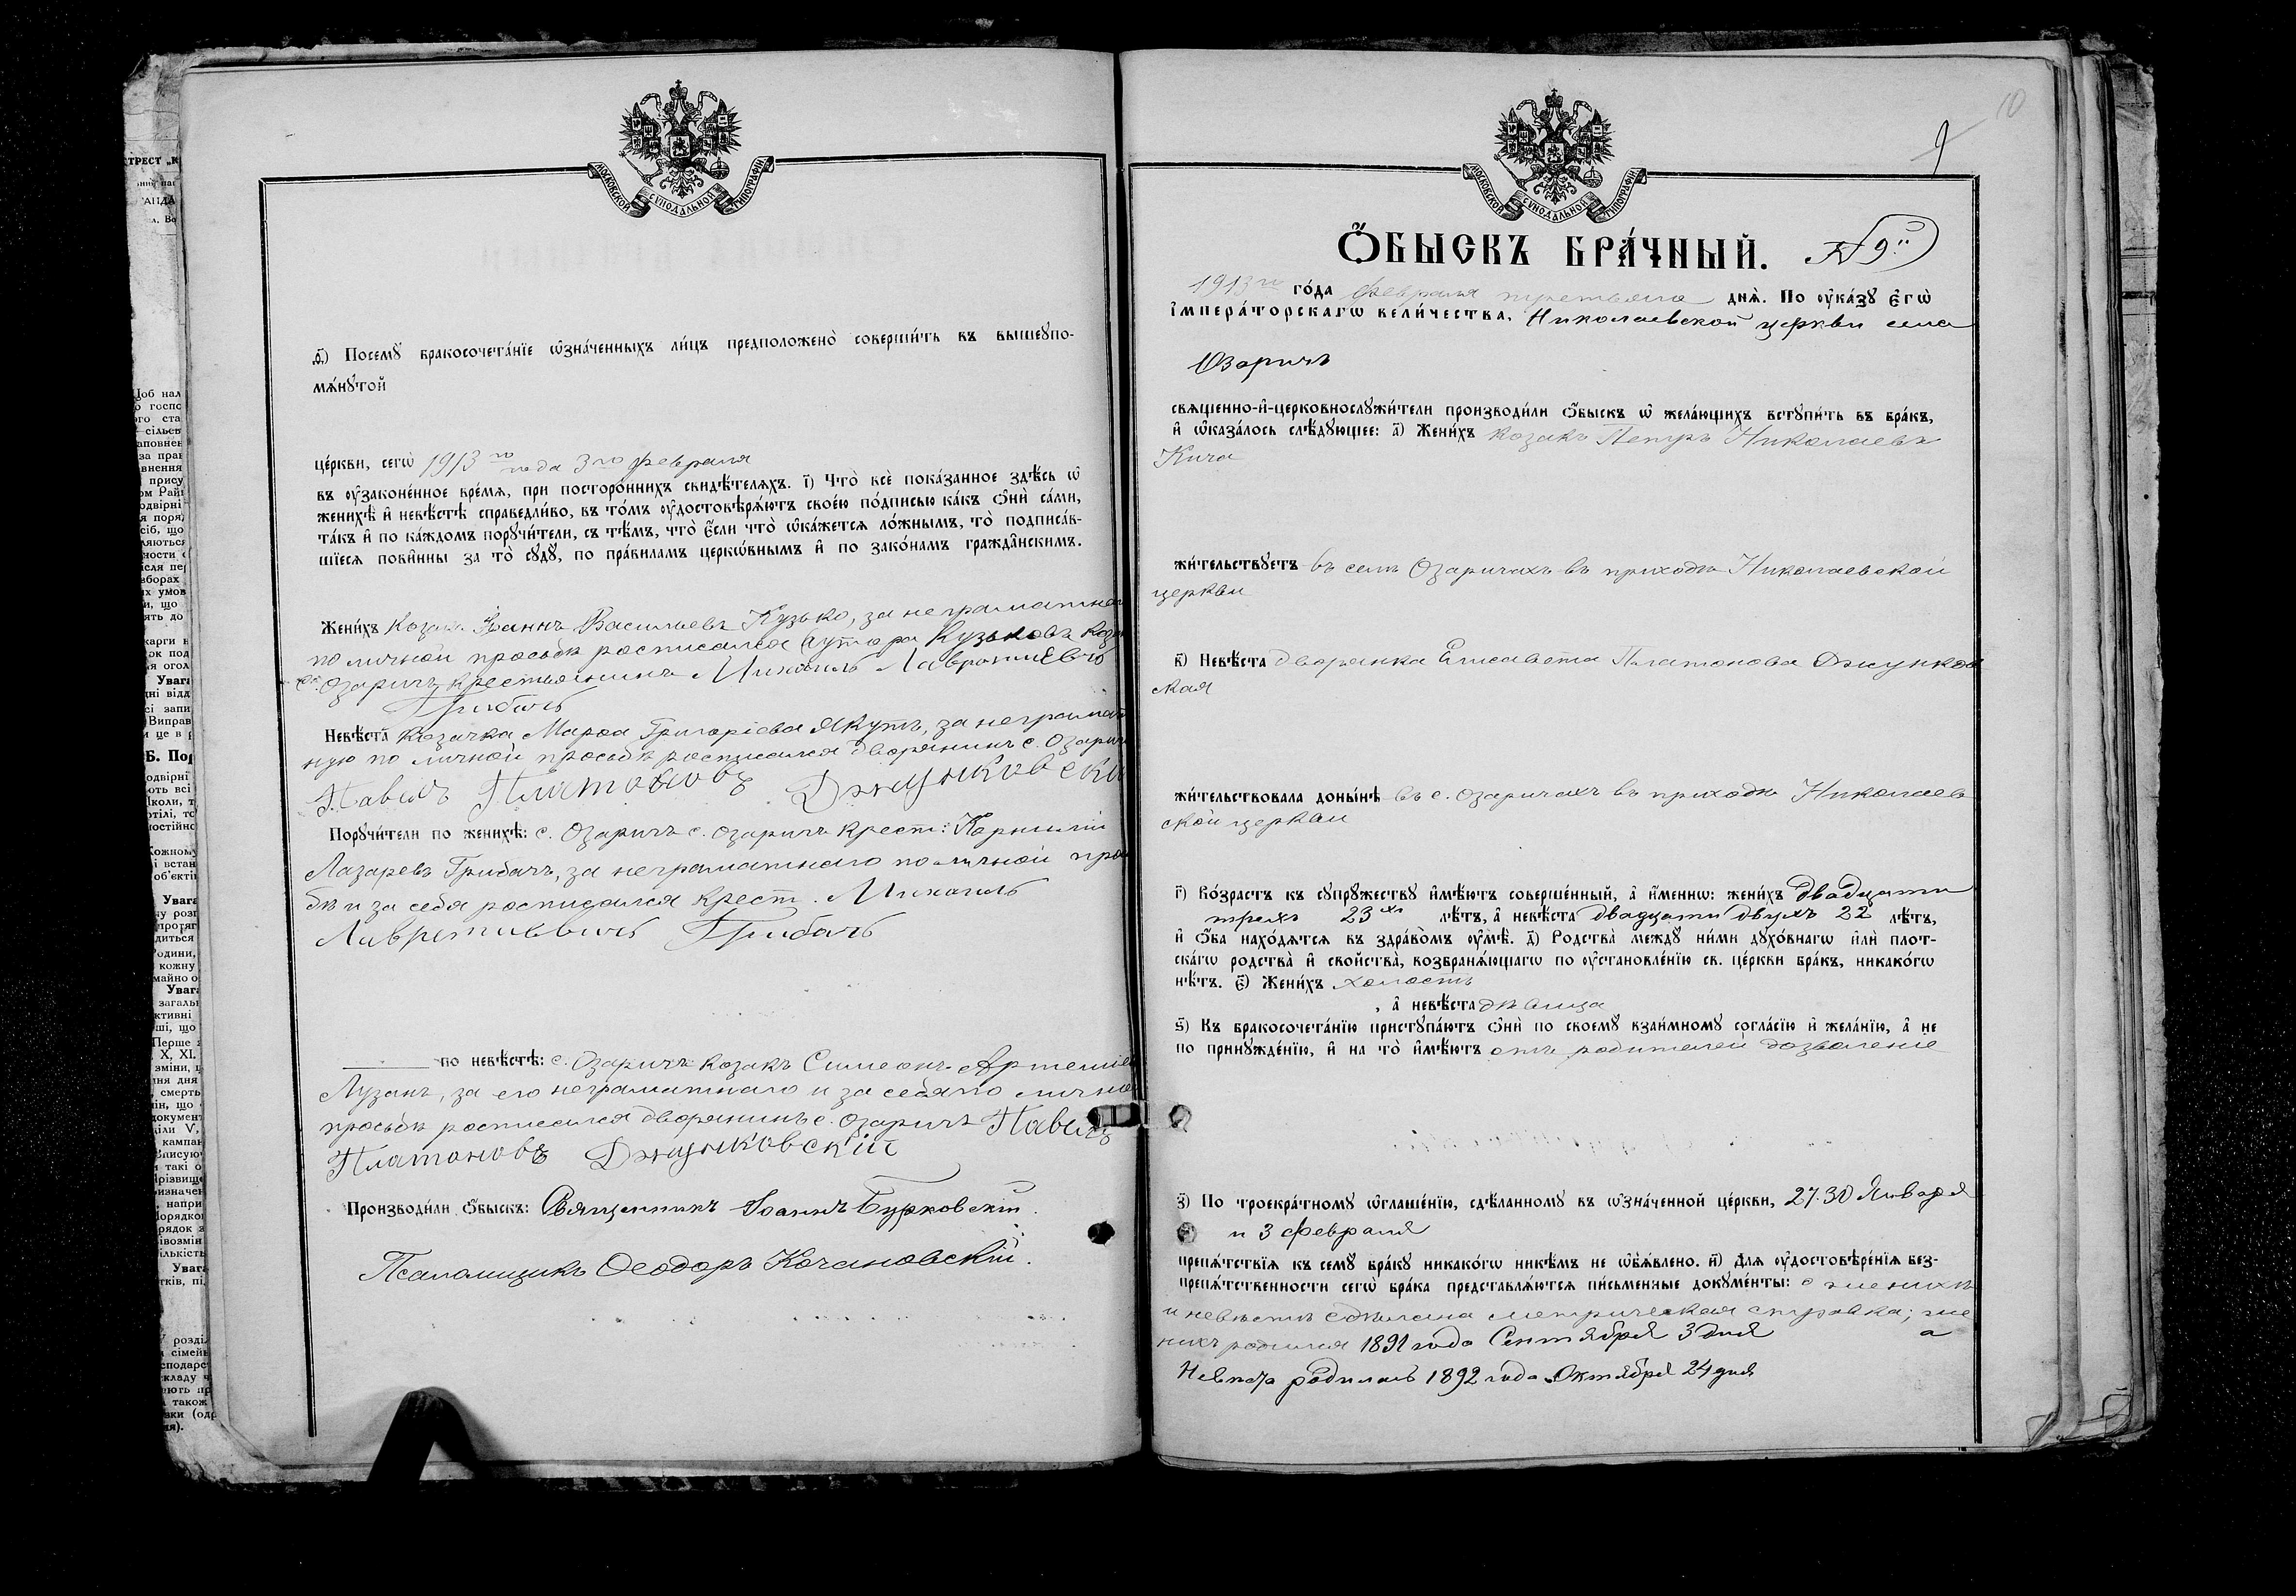 МОСКОВСКОЙ СѴНОДАЛЬНОЙ ТИПОГРАФІИ
ѳ҃) Посемꙋ̀ бракосочета́нїе ѡ҆зна́ченныхъ ли́цъ предположено̀ соверши́ть въ вышеꙋпо-
мѧ́нꙋтой
це́ркви, сегѡ̀ 1913 го года 3го февраля
въ ᲂу҆законе́нное вре́мѧ, при посторо́ннихъ свидѣ́телѧхъ. і҃) Что̀ всѐ пока́занное здѣ́сь ѡ҆
женихѣ̀ и҆ невѣ́стѣ справедли́во, въ то́мъ ᲂу҆достовѣрѧ́ютъ свое́ю по́дписью ка́къ ѻ҆нѝ са́ми,
та́къ и҆ по ка́ждомъ порꙋчи́тели, съ тѣ́мъ, что̀ є҆́сли что̀ ѡ҆ка́жетсѧ ло́жнымъ, то̀ подписа́в-
шїесѧ пови́нны за то̀ сꙋдꙋ̀, по пра́виламъ церкѡ́внымъ и҆ по зако́намъ гражда́нскимъ.
Жени́хъ Козакъ Іоаннъ Васильевъ Кузько, за неграматнаго
по личной просьбѣ росписался хутора Кузьковъ
с. Озаричъ крестьянинъ Михаилъ Лаврентіевъ
Грибачъ
Невѣ́ста козачка Марѳа Григоріева Якутъ, за неграмат
ную по личной просьбѣ росписался дворянинъ с. Озаричъ
Павелъ Платоновъ Джунковскій
Порꙋчи́тели по женихѣ̀: с. Озаричъ с. Озаричъ крест: Корнилій
Лазаревъ Грибачъ, за неграматнаго по личной прось
бѣ и за себя росписался крест. Михаилъ
Лаврентіевичъ Грибачъ
по невѣ́стѣ: с. Озаричъ козакъ Симеонъ Артеміев
Лузанъ, за его неграматнаго и за себя по личной
просьбѣ росписался дворянинъ с. Озаричъ Павелъ
Платоновъ Джунковскій
Производи́ли ѻ҆́быскъ: Священникъ Іоаннъ Бурковскій.
Псаломщикъ Ѳеодоръ Кочановскій.
10
9
МОСКОВСКОЙ СѴНОДАЛЬНОЙ ТИПОГРАФІИ
Ѻ҆́БЫСКЪ БРА́ЧНЫЙ. № 9й
1913 го го́да февраля третьяго днѧ̀. По ᲂу҆ка́зꙋ є҆гѡ̀
і҆мпера́торскагѡ вели́чества, Николаевской церкви села
Озаричъ
свѧщенно-и҆-церковнослꙋжи́тели производи́ли ѻ҆́быскъ ѡ҆ жела́ющихъ встꙋпи́ть въ бра́къ,
и҆ ѡ҆каза́лось слѣ́дꙋющее: а҃) Жени́хъ козакъ Петръ Николаевъ
Кича
жи́тельствꙋетъ въ селѣ Озаричахъ въ приходѣ Николаевской
церкви
в҃) Невѣ́ста дворянка Елисавета Платонова Джунков
ская
жи́тельствовала доны́нѣ въ с. Озаричахъ въ приходѣ Николаев
ской церкви
г҃) Во́зрастъ къ сꙋпрꙋ́жествꙋ и҆мѣ́ютъ соверше́нный, а҆ и҆́меннѡ: жени́хъ двадцати
трехъ 23хъ лѣ́тъ, а҆ невѣ́ста двадцати двухъ 22 лѣ́тъ,
и҆ ѻ҆́ба нахо́дѧтсѧ въ здра́вомъ ᲂу҆мѣ̀. д҃) Родства̀ междꙋ̀ ни́ми дꙋхо́внагѡ и҆лѝ плот-
ска́гѡ родства̀ и҆ свойства̀, возбранѧ́ющагѡ по ᲂу҆становле́нїю св. це́ркви бра́къ, никако́гѡ
нѣ́тъ. є҃) Жени́хъ холостъ
, а҆ невѣ́ста дѣвица
ѕ҃) Къ бракосочета́нїю пристꙋпа́ютъ ѻ҆нѝ по своемꙋ̀ взаи́мномꙋ согла́сїю и҆ жела́нїю, а҆ не
по принꙋжде́нїю, и҆ на то̀ и҆мѣ́ютъ отъ родителей дозволеніе
з҃) По троекра́тномꙋ ѡ҆глаше́нїю, сдѣ́ланномꙋ въ ѡ҆зна́ченной це́ркви, 27. 30 Января
и 3 февраля
препѧ́тствїѧ къ семꙋ̀ бра́кꙋ никако́гѡ никѣ́мъ не ѡ҆б̾ѧ́влено. и҃) Длѧ ᲂу҆достовѣре́нїѧ без-
препѧ́тственности сегѡ̀ бра́ка представлѧ́ютсѧ пи́сьменные докꙋме́нты: о женихѣ
и невѣстѣ сдѣлана метрическая справка; же
нихъ родился 1891 года Сентября 3 дня а
Невѣста родилась 1892 года Октября 24 дня